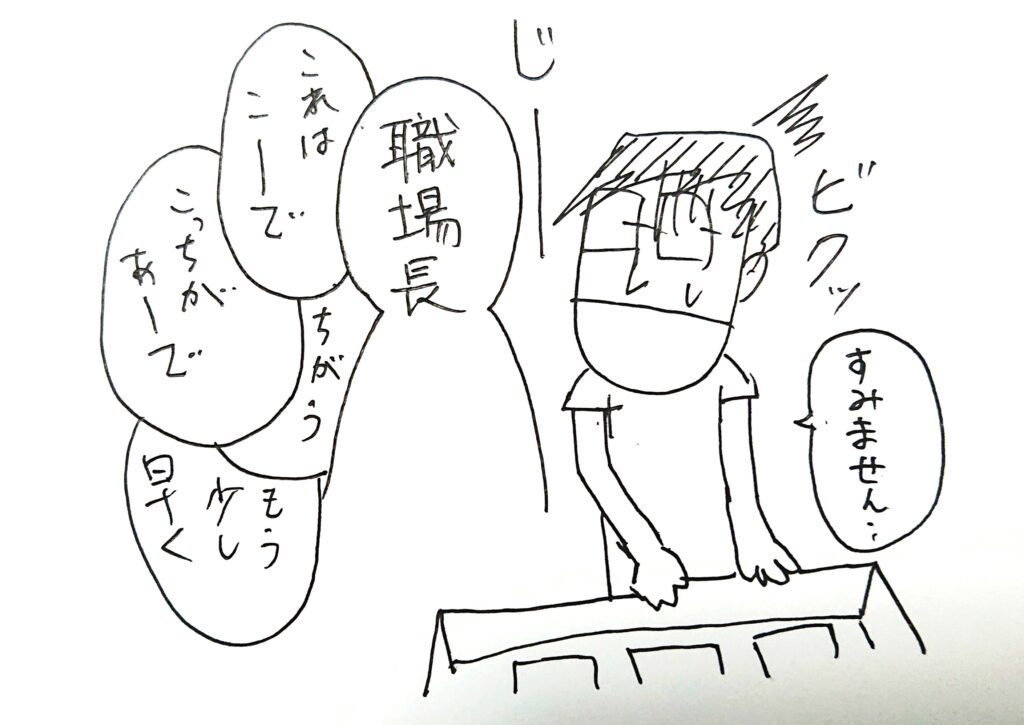 じー
ビクッ
すみません…
職場長
これは
こーで
こっちが
あーで
ちがう
もう
少し
早く